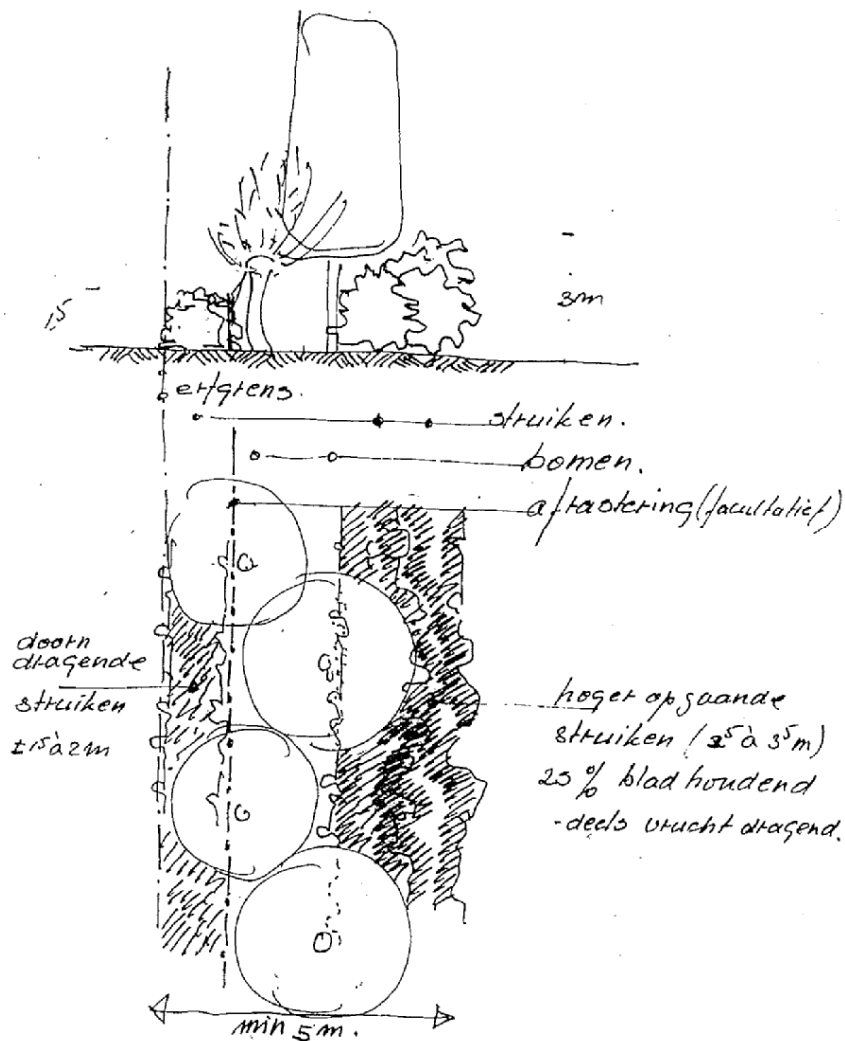 3m
1,5
erfgrens.
struiken.
bomen.
afrastering (facultatief)
doorn
dragende
struiken
± 1⁵ à 2m
hoger opgaande
struiken (2⁵ à 3⁵m)
25 % bladhoudend
- deels vruchtdragend.
min 5m.